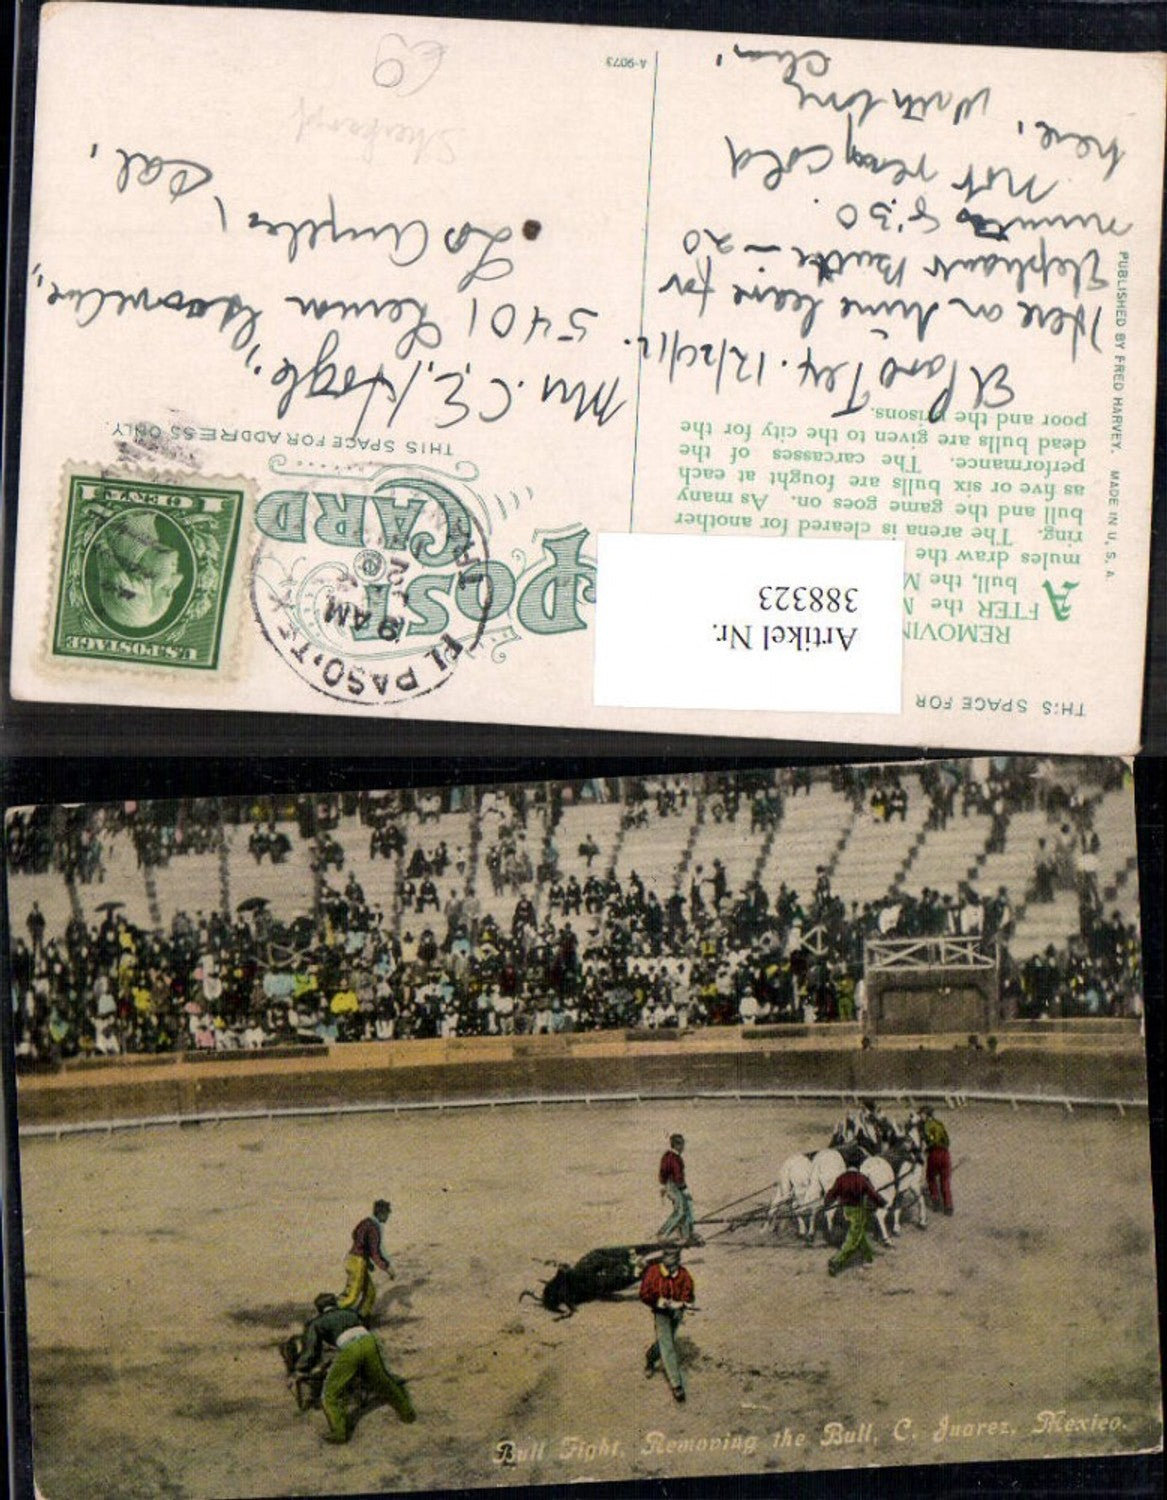 THIS SPACE FOR
REMOVIN
AFTER the M
bull, the M
mules draw the
ring. The arena is cleared for another
bull and the game goes on. As many
as five or six bulls are fought at each
performance. The carcasses of the
dead bulls are given to the city for the
poor and the prisons.
El Paso Tex. 12/21/12.
Here on time leave for
Elephant Butte - 20
minutes 8:30.
Not very cold
here,
With love
PUBLISHED BY FRED HARVEY. MADE IN U. S. A.
Artikel Nr.
388323
POST CARD
THIS SPACE FOR ADDRESS ONLY.
EL PASO, TEX
9 AM
U.S. POSTAGE
1 CENT 1
Mrs. C. E.
5401 Lemon
Los Angeles,
Cal,
A-9073
Bull Fight, Removing the Bull, C. Juarez, Mexico.